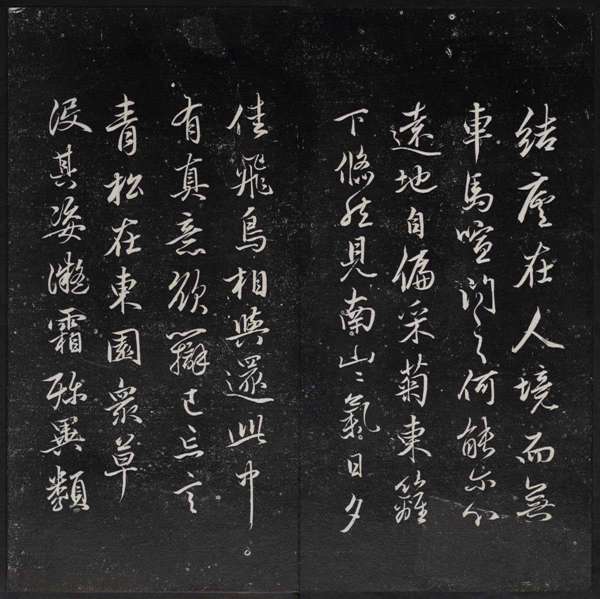 結廬在人境而無
車馬喧问君何能尔心
遠地自偏采菊東籬
下悠然見南山〻氣日夕
佳飛鳥相與還此中。
有真意欲辯已忘言
青松在東園眾草
沒其姿凝霜殄異類